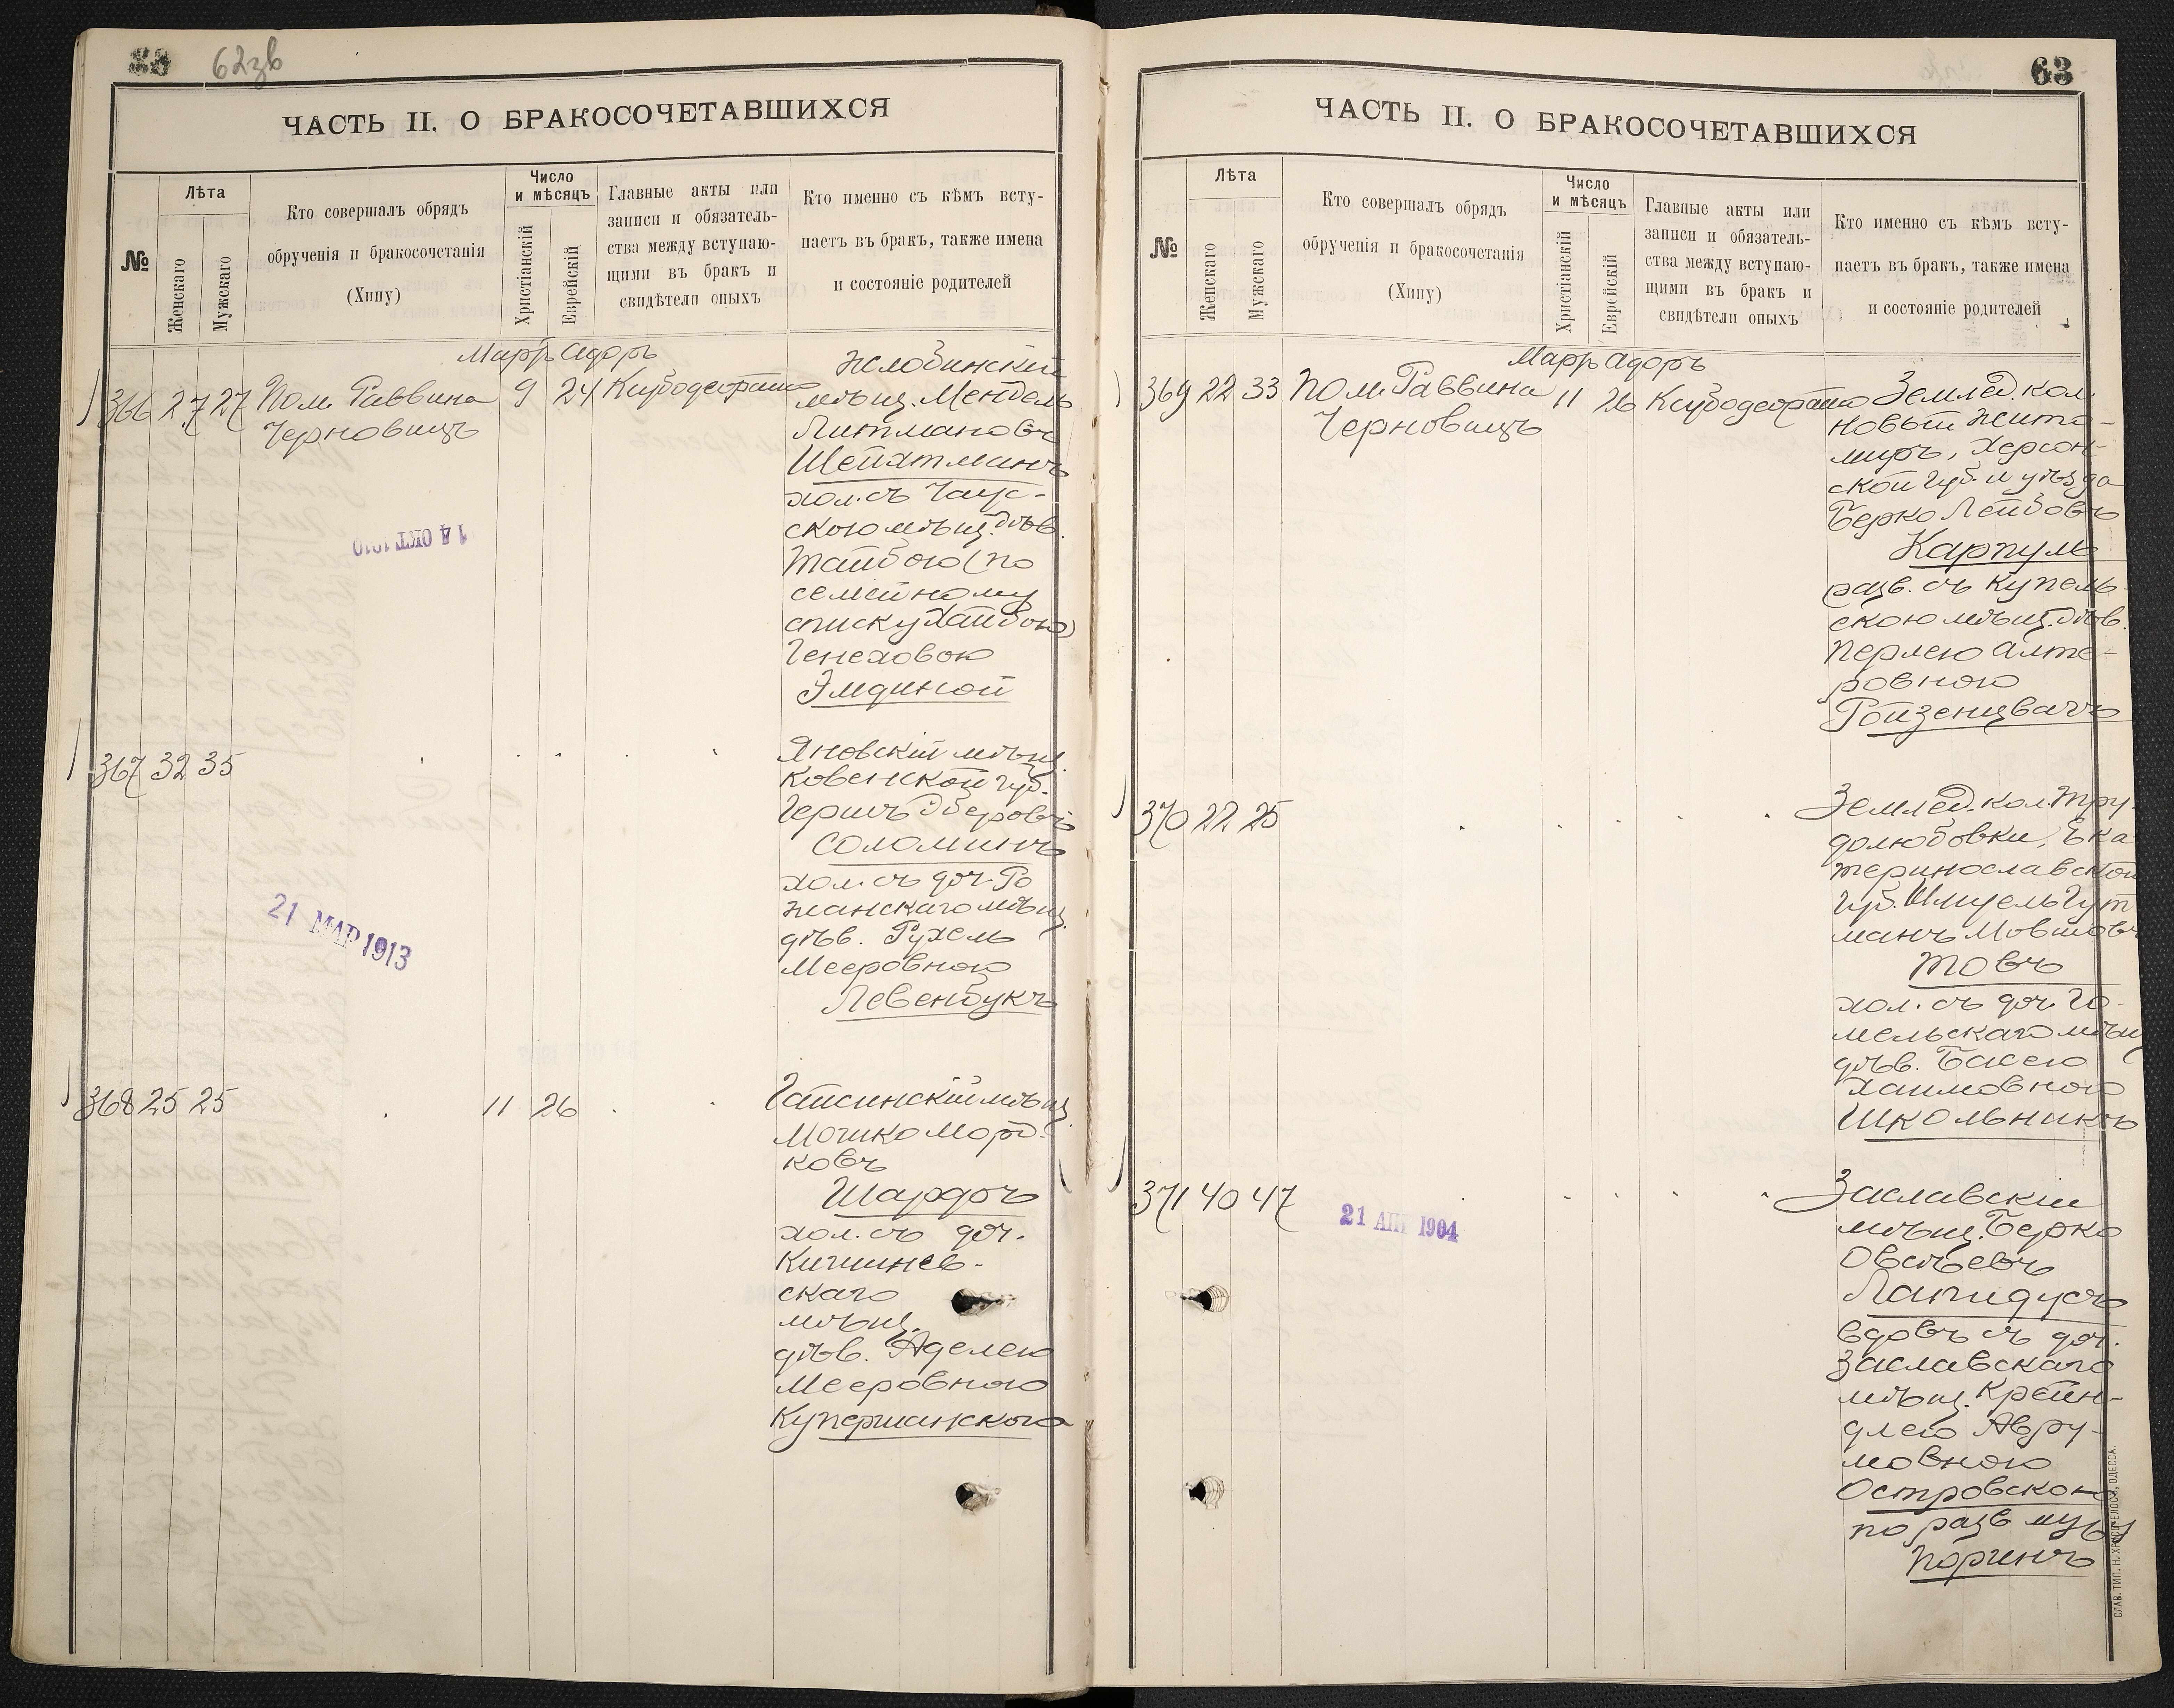 62зв
ЧАСТЬ II. О БРАКОСОЧЕТАВШИХСЯ
№
Лѣта
Женскаго
Мужскаго
Кто совершалъ обрядъ
обрученія и бракосочетанія
(Хипу)
Число
и мѣсяцъ
Христіанскій
Еврейскій
Главные акты или
записи и обязатель-
ства между вступаю-
щими въ бракъ и
свидѣтели оныхъ
Кто именно съ кѣмъ всту-
паетъ въ бракъ, также имена
и состояніе родителей
Мартъ Адоръ
366 27 27 Пом. Раввина 9 24
Черновицъ
Жлобинскій
мѣщ. Мендель
Литмановъ
Шейхтманъ
хол. съ Чаус-
скою мѣщ. дѣв.
Тайбою (по
семейному
списку Хайбою)
Генеховою
Эмдиной
14 ОКТ 1910
367 32 35
Яновскій мѣщ.
Ковенской губ.
Гершъ Оберовъ
Соломинъ
хол. съ доч. Ро
жанскаго мѣщ.
дѣв. Рухель
Мееровною
Левенбукъ
21 МАР 1913
368 25 25 11 26
Гайсинскій мѣщ.
Мошко Морд-
ковъ
Шардонъ
хол. съ доч.
Кишинев-
скаго
мѣщ.
дѣв. Аделею
Мееровною
63
ЧАСТЬ II. О БРАКОСОЧЕТАВШИХСЯ
№
Лѣта
Женскаго
Мужскаго
Кто совершалъ обрядъ
обрученія и бракосочетанія
(Хипу)
Число
и мѣсяцъ
Христіанскій
Еврейскій
Главные акты или
записи и обязатель-
ства между вступаю-
щими въ бракъ и
свидѣтели оныхъ
Кто именно съ кѣмъ всту-
паетъ въ бракъ, также имена
и состояніе родителей
Мартъ Адоръ
369 22 33 Пом. Раввина 11 26
Черновицъ
Землед. кол.
Новый Жито-
миръ, Херсон-
ской губ. и уѣзда
Берко Лейбовъ
Карпуль
разв. съ Купель-
скою мѣщ. дѣв.
Перлею Алте-
ровною
Ройзенцвагъ
370 22 25
Землед. кол. Тру-
долюбовки, Ека
теринославской
губ. Шмуель Гут
манъ Мовшовъ
Товъ
хол. съ доч. Го-
мельскаго мѣщ.
дѣв. Басею
Хаимовною
Школьникъ
371 40 47
Заславскій
мѣщ. Берко
Овсѣевъ
Лапидусъ
вдовъ съ доч.
Заславскаго
мѣщ. Крейн-
длею Авру-
мовною
Островскою
по разв. мужу
Поринъ
21 АПР 1904
СЛАВ. ТИП. Н. ХРИСОГЕЛОСЪ, ОДЕССА.